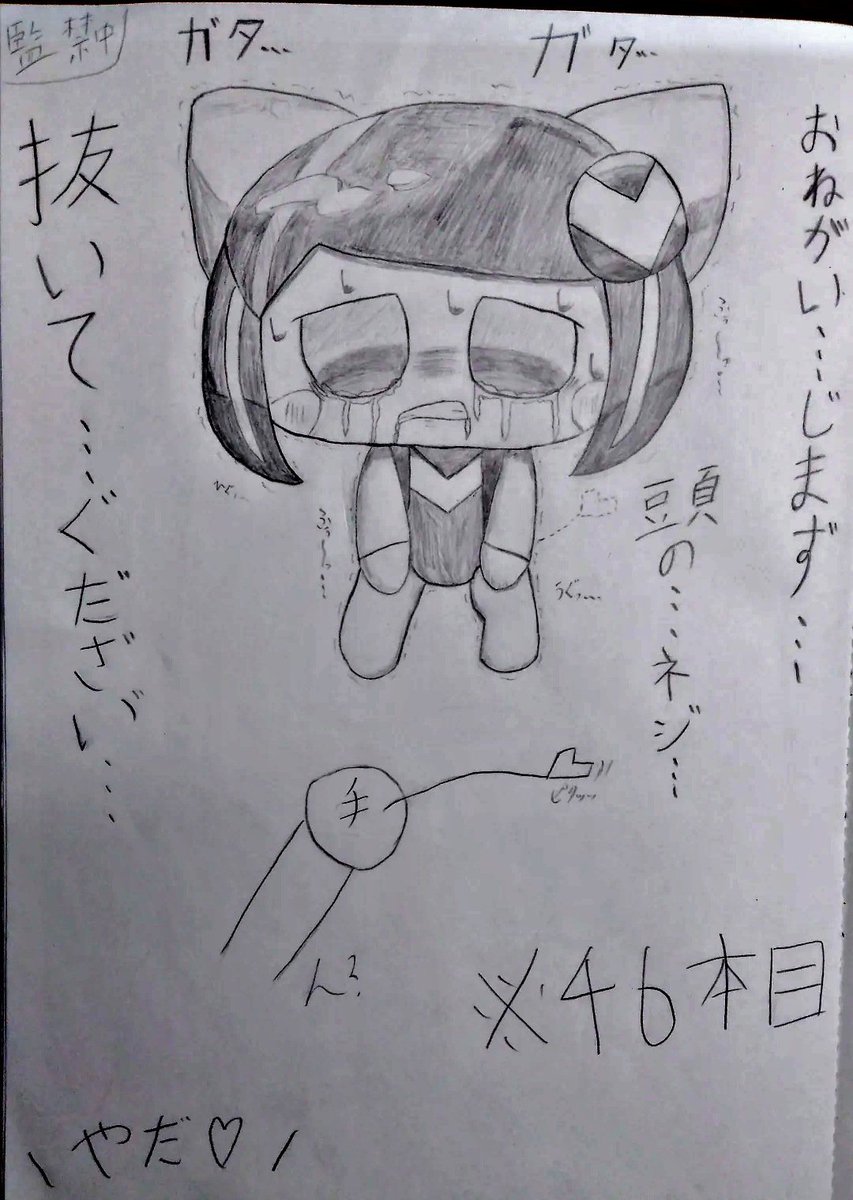 監禁中
ガタ…
ガタ…
おねがい……じまず……
頭の……ネジ…
抜いて……ぐだざい゛……
ふーっ…
うぐっ…
ピタッ
手
ん?
※46本目
\やだ♡/